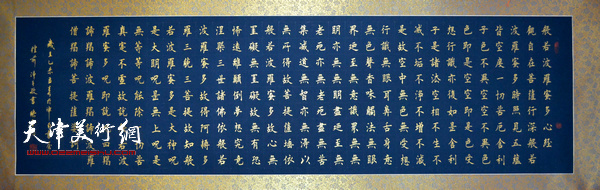 般若波羅蜜多心經
觀自在菩薩行深般若
波羅蜜多時照見五蘊
皆空度一切苦厄舍利
子色不異空空不異色
色即是空空即是色受
想行識亦復如是舍利
子是諸法空相不生不
滅不垢不淨不增不減
是故空中無色無受想
行識無眼耳鼻舌身意
無色聲香味觸法無眼
界乃至無意識界無無
明亦無無明盡乃至無
老死亦無老死盡無苦
集滅道無智亦無得以
無所得故菩提薩埵依
般若波羅蜜多故心無
罣礙無罣礙故無有恐
怖遠離顛倒夢想究竟
涅槃三世諸佛依般若
波羅蜜多故得阿耨多
羅三藐三菩提故知般
若波羅蜜多是大神咒
是大明咒是無上咒是
無等等咒能除一切苦
真實不虛故說般若波
羅蜜多咒即說咒曰揭
諦揭諦波羅揭諦波羅
僧揭諦菩提薩婆訶
乙未
天津美術網